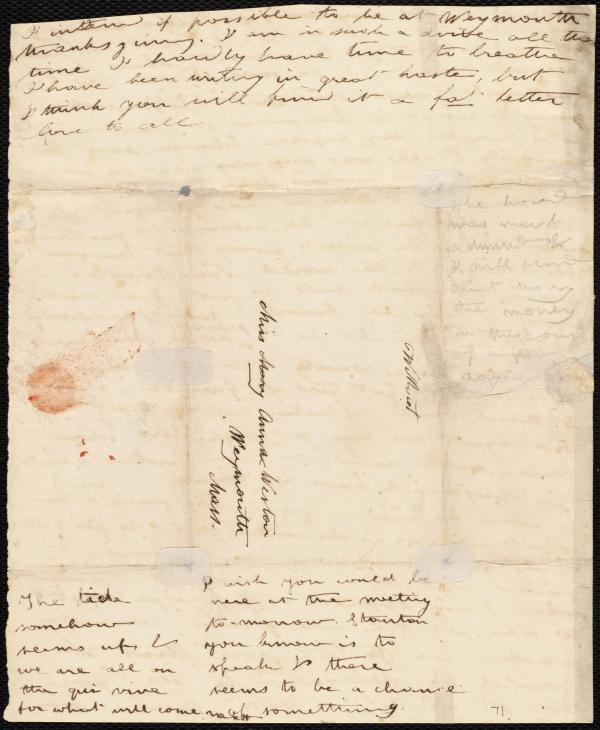 I intend if possible to be at Weymouth
thanksgiving. I am in such a drive all the
time I hardly have time to breathe
I have been writing in great haste, but
I think you will find it a fat letter
Love to all
The hood
was much
admired &
I will send
aunt Mary
the money
in the course
of a few
days
Miss Mary Anna Weston
Weymouth
Mass.
The tide
somehow
seems up &
we are all on
the qui vive
for what will come next
I wish you would be
here at the meeting
to-morrow. Stanton
you know is to
speak & there
seems to be a chance
of something.
71